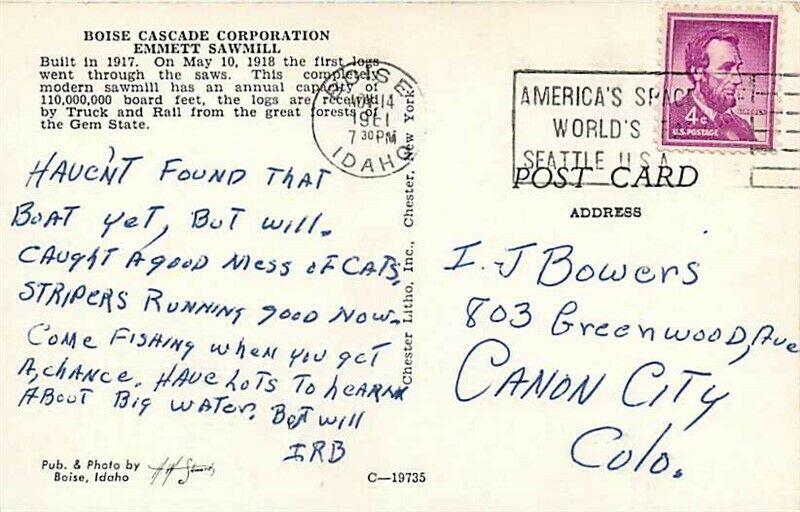 BOISE CASCADE CORPORATION
EMMETT SAWMILL
Built in 1917. On May 10, 1918 the first logs
went through the saws. This completely
modern sawmill has an annual capacity of
110,000,000 board feet, the logs are received
by Truck and Rail from the great forests of
the Gem State.
HAVEN'T FOUND THAT
BOAT YET, BUT WILL.
CAUGHT A GOOD MESS OF CATS.
STRIPERS RUNNING GOOD NOW.
COME FISHING WHEN YOU GET
A CHANCE. HAVE LOTS TO LEARN
ABOUT BIG WATER. BUT WILL
IRB
Pub. & Photo by
Boise, Idaho
C—19735
Chester Litho, Inc., Chester, New York
BOISE
14
1961
7 30 PM
IDAHO
AMERICA'S SPACE
WORLD'S
SEATTLE U.S.A.
4¢
U.S. POSTAGE
POST CARD
ADDRESS
I. J Bowers
803 Greenwood, Ave
CANON CITY
Colo.